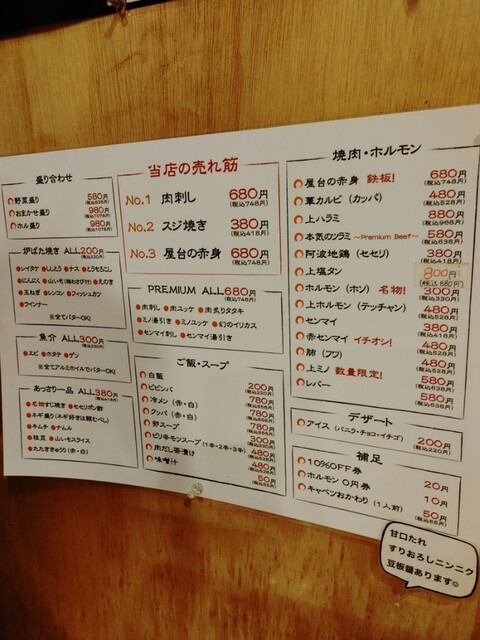 盛り合わせ
野菜盛り 580円 (税込638円)
おまかせ盛り 980円 (税込1078円)
ホル盛り 980円 (税込1078円)
炉ばた焼き ALL200円 (税込220円)
シイタケ ししとう ナス とうもろこし
にんにく 山いも(輪わさび付) えのき
玉ねぎ レンコン フィッシュカツ
ウインナー
※全てバターOK!
魚介 ALL300円 (税込330円)
エビ ホタテ ゲソ
※全てアルミホイルでバターOK!
あっさり一品 ALL380円 (税込418円)
名物すじ焼き セセリポン酢
ネギ盛り(ネギ好きは頼むべし)
キムチ ナムル
枝豆 山いもスライス
たたききゅうり(赤・白)
当店の売れ筋
No.1 肉刺し 680円 (税込748円)
No.2 スジ焼き 380円 (税込418円)
No.3 屋台の赤身 680円 (税込748円)
PREMIUM ALL680円 (税込748円)
肉刺し 肉ユッケ 肉炙りタタキ
ミノ湯引き ミノユッケ 幻のイリカス
センマイ刺し センマイ湯引き
ご飯・スープ
白飯 200円 (税込220円)
ビビンバ 780円 (税込858円)
冷メン(赤・白) 780円 (税込858円)
クッパ(赤・白) 780円 (税込858円)
卵スープ 300円 (税込330円)
ピリ辛モツスープ(1辛・2辛・3辛) 480円 (税込528円)
肉だし茶漬け 480円 (税込528円)
味噌汁 50円 (税込55円)
焼肉・ホルモン
屋台の赤身 鉄板! 680円 (税込748円)
草カルビ(カッパ) 480円 (税込528円)
上ハラミ 880円 (税込968円)
本気のツラミ ~Premium Beef~ 580円 (税込638円)
阿波地鶏(セセリ) 380円 (税込418円)
上塩タン 800円 (税込880円)
ホルモン(ホン) 名物! 300円 (税込330円)
上ホルモン(テッチャン) 480円 (税込528円)
センマイ 380円 (税込418円)
赤センマイ イチオシ! 480円 (税込528円)
肺(フワ) 480円 (税込528円)
上ミノ 数量限定! 580円 (税込638円)
レバー 580円 (税込638円)
デザート
アイス(バニラ・チョコ・イチゴ) 200円 (税込220円)
補足
10%OFF券 20円
ホルモン0円券 10円
キャベツおかわり(1人前) 50円 (税込55円)
甘口たれ
すりおろしニンニク
豆板醤あります☺